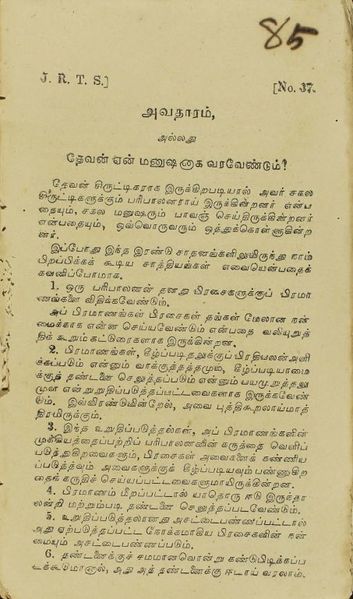 85
J. R. T. S.] [No. 37.
அவதாரம்,
அல்லது
தேவன் ஏன் மனுஷனாக வரவேண்டும்?
தேவன் சிருட்டிகராக இருக்கிறபடியால் அவர் சகல
சிருட்டிகளுக்கும் பரிபாலனராய் இருக்கின்றனர் என்ப
தையும், சகல மனுஷரும் பாவஞ் செய்திருக்கின்றனர்
என்பதையும், ஒவ்வொருவரும் ஒத்துக்கொள்ளுகின்ற
னர்.
இப்போது இந்த இரண்டு சாதனங்களிலுமிருந்து நாம்
பிறப்பிக்கக் கூடிய சாத்தியங்கள் எவையென்பதைக்
கவனிப்போமாக.
1. ஒரு பரிபாலனன் தனது பிரசைகளுக்குப் பிரமா
ணங்களை விதிக்கவேண்டும்.
அப் பிரமாணங்கள் பிரசைகள் தங்கள் மேலான நன்
மைக்காக என்ன செய்யவேண்டும் என்பதை வலியுறுத்
திக் கூறும் கட்டுரைகளாக இருக்கின்றன.
2. பிரமாணங்கள், கீழ்ப்படிதலுக்குப் பிரதிபலன் அளி
க்கப்படும் என்னும் வாக்குத்தத்தமும், கீழ்ப்படியாமை
க்குத் தண்டனை செலுத்தப்படும் என்னும் பயமுறுத்தலு
முள என்றுறுதிப்படுத்தப்பட்டவைகளாக இருக்கவேண்
டும். இவ்விரண்டுமின்றேல், அவை புத்திகூறலாய்மாத்
திரமிருக்கும்.
3. இந்த உறுதிப்படுத்தல்கள், அப் பிரமாணங்களின்
முக்கியத்தைப்பற்றிப் பரிபாலனனின் கருத்தை வெளிப்
படுத்துகிறவைகளும், பிரசைகள் அவைகளைக் கண்ணி
யப்படுத்தவும் அவைகளுக்குக் கீழ்ப்படியவும் பண்ணுகிற
தைக் கருதிச் செய்யப்பட்டவைகளுமாயிருக்கின்றன.
4. பிரமாணம் மீறப்பட்டால் யாதொரு ஈடு இருந்தா
லன்றி மற்றும்படி தண்டனை செலுத்தப்படவேண்டும்.
5. உறுதிப்படுத்தலானது அசட்டைபண்ணப்பட்டால்
அது ஏற்படுத்தப்பட்ட நோக்கமாகிய பிரசைகளின் நன்
மையும் அசட்டைபண்ணப்படும்.
6. தண்டனைக்குச் சமமானவொன்று கண்டுபிடிக்கப்ப
டக்கூடுமானால், அது அத் தண்டனைக்கு ஈடாய் வரலாம்.